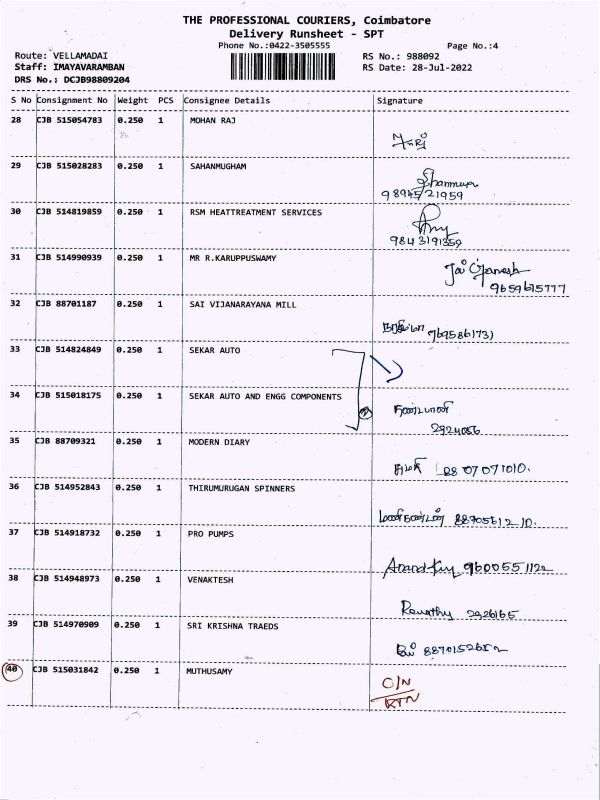 THE PROFESSIONAL COURIERS, Coimbatore
Delivery Runsheet - SPT
Phone No.:0422-3505555 Page No.:4
Route: VELLAMADAI RS No.: 988092
Staff: IMAYAVARAMBAN RS Date: 28-Jul-2022
DRS No.: DCJB98809204
S No Consignment No Weight PCS Consignee Details Signature
28 CJB 515054783 0.250 1 MOHAN RAJ
29 CJB 515028283 0.250 1 SAHANMUGHAM
Shanmuga
9894521959
30 CJB 514819859 0.250 1 RSM HEATTREATMENT SERVICES
9843191359
31 CJB 514990939 0.250 1 MR R.KARUPPUSWAMY
Jai Ganesh
9659615777
32 CJB 88701187 0.250 1 SAI VIJANARAYANA MILL
7695861731
33 CJB 514824849 0.250 1 SEKAR AUTO
34 CJB 515018175 0.250 1 SEKAR AUTO AND ENGG COMPONENTS
2924056
35 CJB 88709321 0.250 1 MODERN DIARY
88 07071010.
36 CJB 514952843 0.250 1 THIRUMURUGAN SPINNERS
8870551210.
37 CJB 514918732 0.250 1 PRO PUMPS
Anand Kumar 9600551122
38 CJB 514948973 0.250 1 VENAKTESH
Revathy 2926165
39 CJB 514970909 0.250 1 SRI KRISHNA TRAEDS
40 CJB 515031842 0.250 1 MUTHUSAMY
C/N
RTN